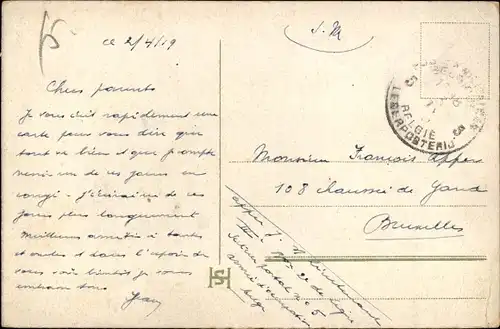 S.M
ce 2/4/19
Chers parents
Je vous écris rapidement une
carte pour vous dire que
tout va bien et que je compte
revenir un de ces jours en
congé - J'écrirai de ces
jours plus longuement
Meilleures amitiés à tantes
et oncles et dans l'espoir de
vous voir bientôt je vous
embrasse tous
Monsieur François Appers
108 chaussée de Gand
Bruxelles
Appers J.
III
de ligne
Secteur postal no 5
armée d'occupation
belge
BELGIE
LEGERPOSTERIJ
5
HS